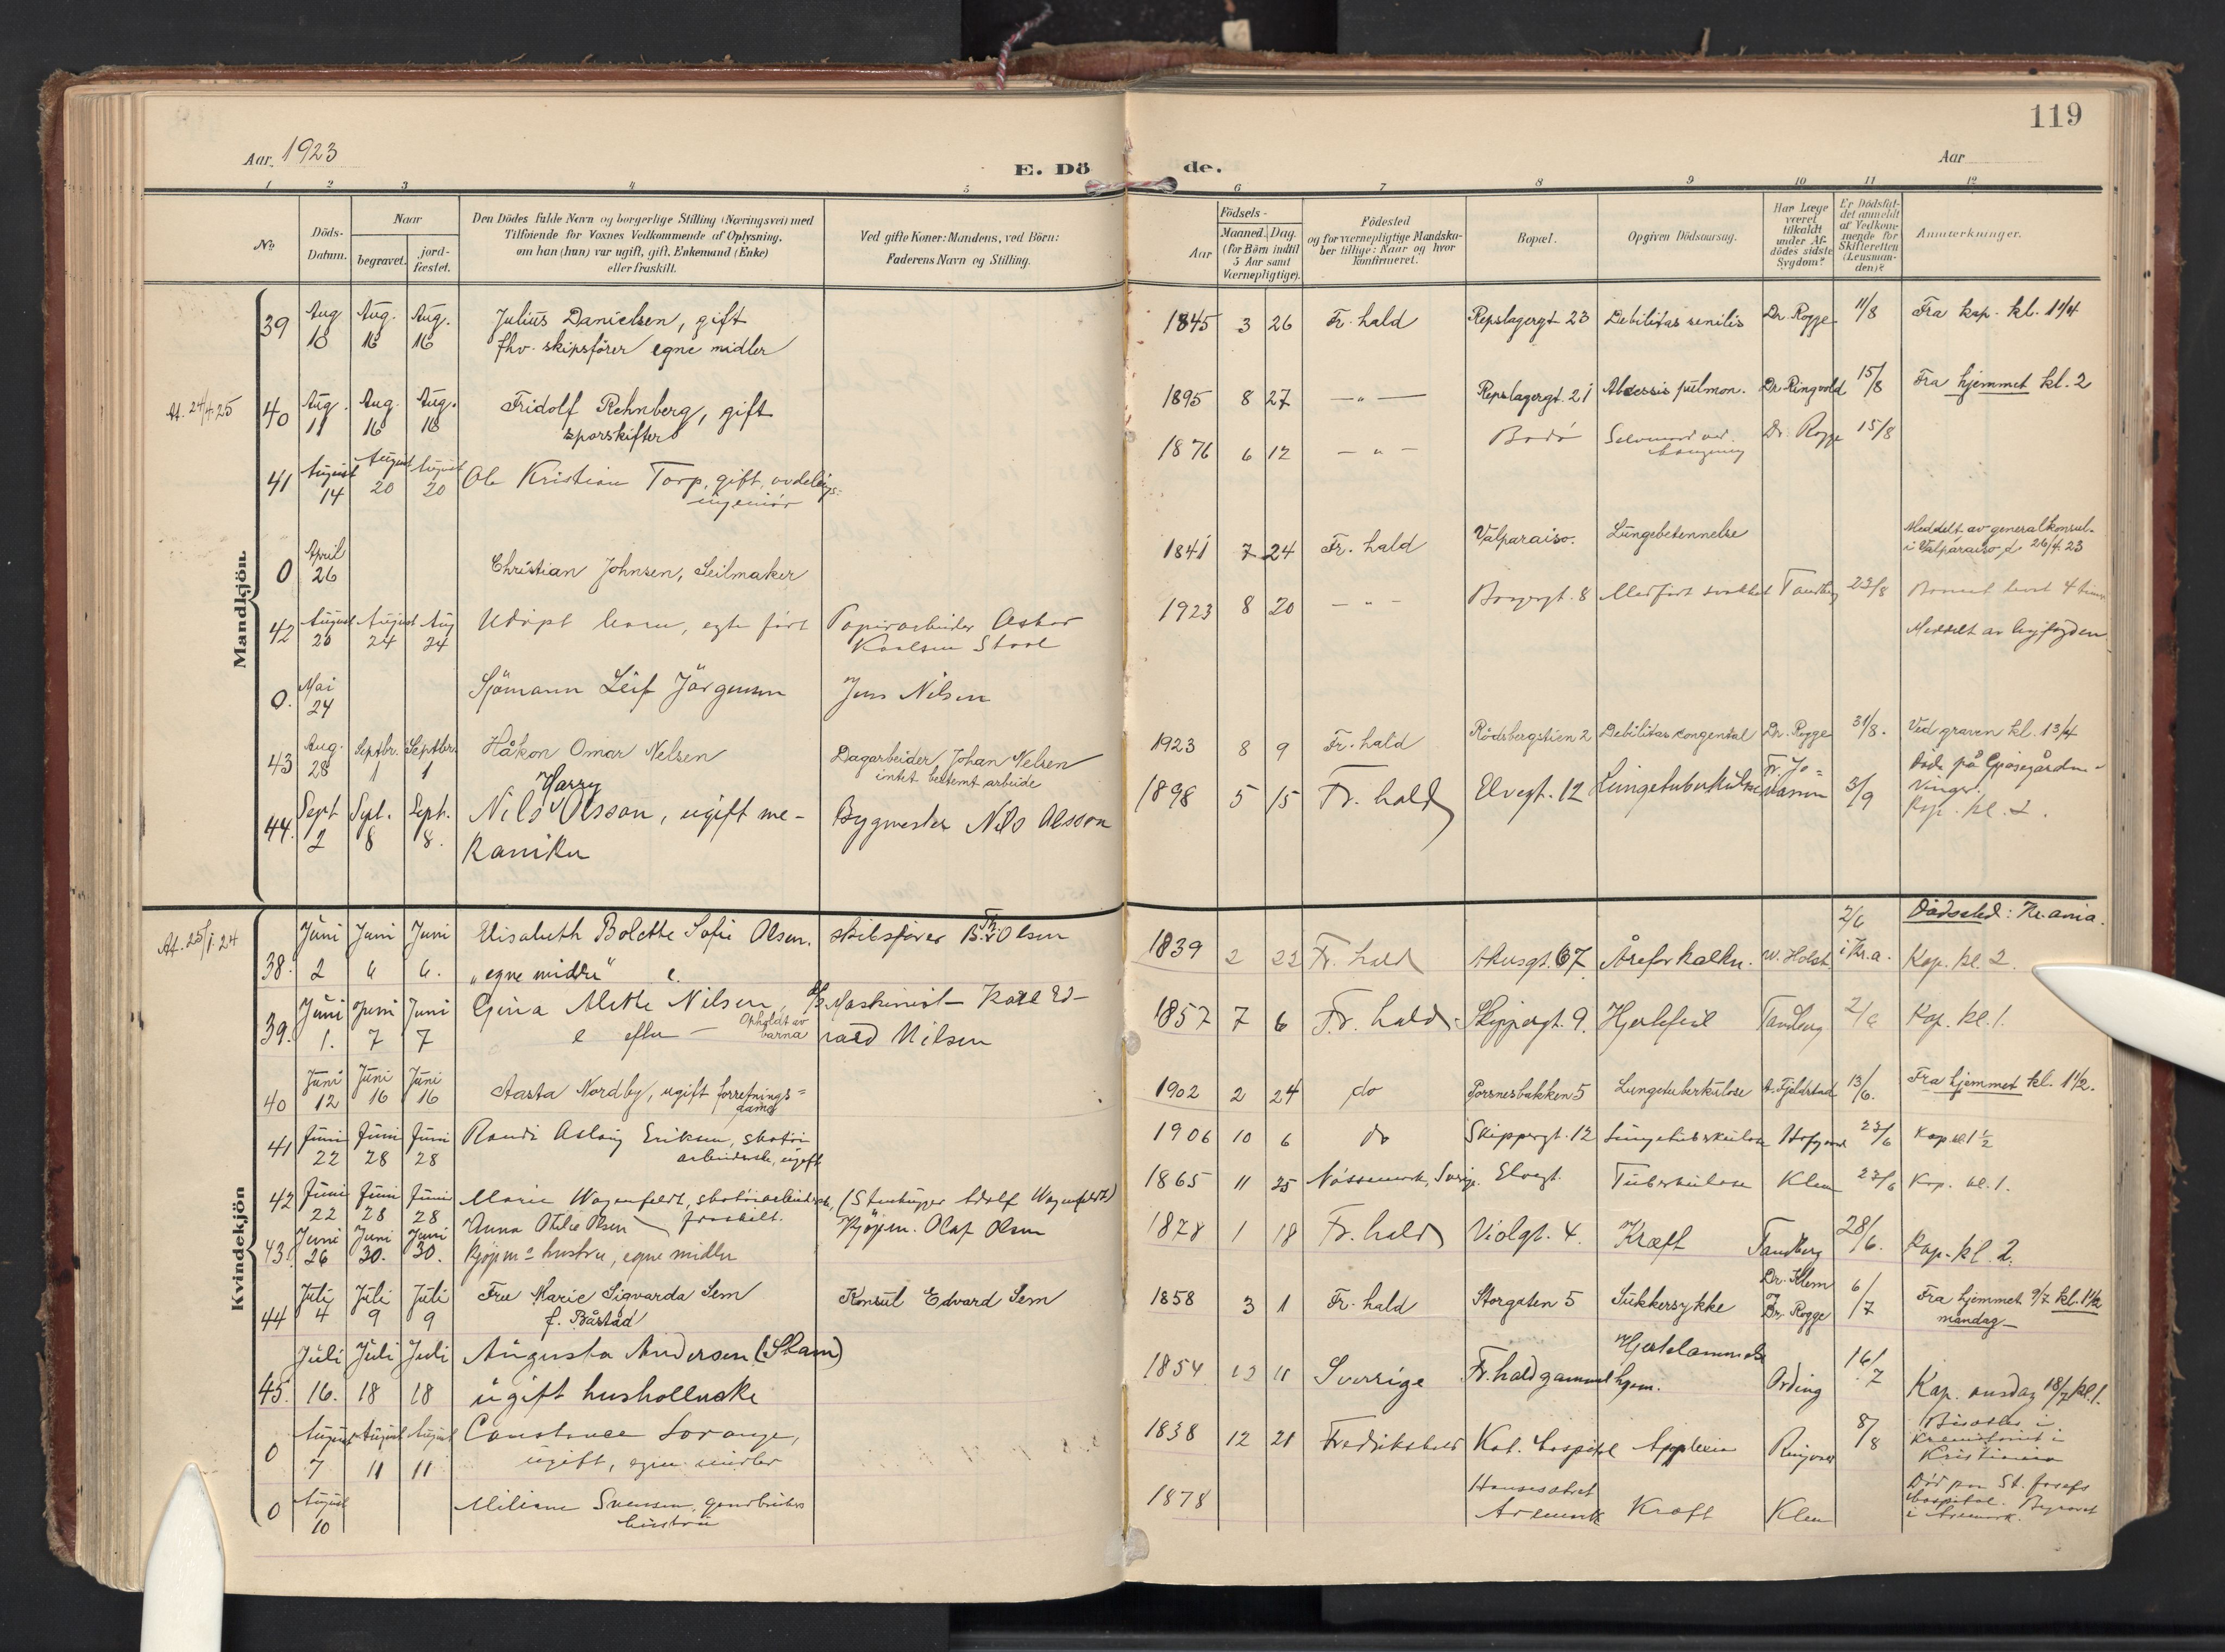 119
Aar. 1923
E. Dö de.
Aar
1 2 3 4 5 6 7 8 9 10 11 12
No
Döds-
Datum.
Naar
begravet.
jord-
fæstet.
Den Dödes fulde Navn og borgerlige Stilling (Næringsvei) med
Tilföiende for Voxnes Vedkommende af Oplysning,
om han (hun) var ugift, gift, Enkemand (Enke)
eller fraskilt.
Ved gifte Koner: Mandens, ved Börn:
Faderens Navn og Stilling.
Födsels-
Aar
Maaned. Dag.
(for Börn indtil
5 Aar samt
Værnepligtige).
Födested
og for værnepligtige Mandska-
ber tillige: Naar og hvor
konfirmeret.
Bopæl.
Opgiven Dödsaarsag.
Har Læge
været
tilkaldt
under Af-
dödes sidste
Sygdom?
Er Dödsfal-
det anmeldt
af Vedkom-
mende for
Skifteretten
(Lensman-
den)?
Anmærkninger.
Mandkjön
39 Aug 10 Aug. 16 Aug. 16 Julius Danielsen, gift
fhv. skipsförer egne midler
1845 3 26 Fr.hald Repslagergt 23 Debilitas senilis Dr. Rogge 11/8 Fra kap. kl. 11/4
At. 24/4 25
40 Aug. 11 Aug. 16 Aug. 16 Fridolf Rehnberg, gift
sporskifter
1895 8 27 — „ — Repslagergt. 21 Abscessis pulmon. Dr. Ringvold 15/8 Fra hjemmet kl. 2
41 August 14 August 20 August 20 Ole Kristian Torp, gift, avdelings-
ingeniör
1876 6 12 — „ — Bodö Selvmord ved Dr. Rogge 15/8
0 April 26 Christian Johnsen, Seilmaker
1841 7 24 Fr. hald Valparaiso. Lungebetennelse Meddelt av generalkonsul.
i Valparaiso d. 26/4 23
42 August 20 August 24 Aug 24 Udöpt barn, egte født Papirarbeider Oskar
1923 8 20 — „ — Borgergt. 8 Medfødt svakhet Tandberg 22/8 Barnet levet 4 timer
0. Mai 24 Sjömann Leif Jörgensen Jens Nilsen
Meddelt av byfogden
43 Aug. 28 Septbr. 1 Septbr. 1 Håkon Omar Nelsen Dagarbeider Johan Nelsen
intet bestemt arbeide
1923 8 9 Fr. hald Rödsbergstien 2 Debilitas congenital Dr. Rogge 31/8. Ved graven kl. 13/4
44. Sept 2 Sept. 8 Sept. 8. Nils Harry Olsson, ugift me-
kaniker
Bygmester Nils Olsson
1898 5 15 Fr. hald Elvegt. 12 Lungetuberkulose 3/9 Döde på
Kap. kl. 2.
Kvindekjön
At. 25/1. 24
38. Juni 2 Juni 6 Juni 6. Elisabeth Bolette Sofie Olsen. skibsfører B. Th. Olsen
„egne midler" e.
1839 2 22 Fr. hald 67 Åreforkalkn. W. Holst 2/6 i Kr.a. Dödssted: Kr.ania.
Kap. kl. 2.
39. Juni 1. Juni 7 Juni 7 Gina Mette Nilsen, Maskinist Karl Ed-
e efter — Opholdt av
barna vard Nilsen
1857 7 6 Fr. hald Skippergt. 9. Hjertefeil Tandberg 2/6 Kap. kl. 1.
40 Juni 12 Juni 16 Juni 16 Aasta Nordby, ugift forretnings=
dame
1902 2 24 do Porsnesbakken 5 Lungetuberkulose A. Fjeldstad 13/6. Fra hjemmet kl. 1½.
41 Juni 22 Juni 28 Juni 28 Randi Aslaug Eriksen, skotöi
arbeiderske, ugift
1906 10 6 do Skippergt. 12 Lungetuberkulose 23/6 Kap. kl. 1½
42 Juni 22 Juni 28 Juni 28 Marie Wagenfeldt, skotöiarbeiderske, (Stenhugger Adolf Wagenfeldt)
fraskilt.
1865 11 25 Nössemark, Sverige. Elvegt. Tuberkulose Klem 23/6 Kap. kl. 1.
43. Juni 26 Juni 30. Juni 30. Anna Otilie Olsen Kjöpm. Olaf Olsen
Kjöpm.s hustru, egne midler
1878 1 18 Fr. hald Violgt. 4. Kræft Tandberg 28/6. Kap. kl. 2.
44 Juli 4 Juli 9 Juli 9 Fru Marie Sigvarda Sem Konsul Edvard Sem
f. Båstad
1858 3 1 Fr. hald Storgaten 5 Sukkersyke Dr. Klem
og
Dr. Rogge 6/7 Fra hjemmet 9/7 kl. 1½
mandag
45. Juli 16. Juli 18 Juli 18 Augusta Andersen (Skam)
ugift husholderske
1854 12 11 Sverige Fr.hald gammelhjem. Hjertelammelse Ording 16/7 Kap. onsdag 18/7 kl. 1.
0 August 7 August 11 August 11 Constance Lorange,
ugift, egne midler
1838 12 21 Fredrikshald Kat. hospital Apoplexia Ringvold 8/8 Bisættes i
Krematoriet i
Kristiania
0 August 10 Miliane Svensen, gaardbrukers
hustru
1878 Aremark Kræft Klem Död paa St. Josefs
hospital. Begravet
i Aremark.